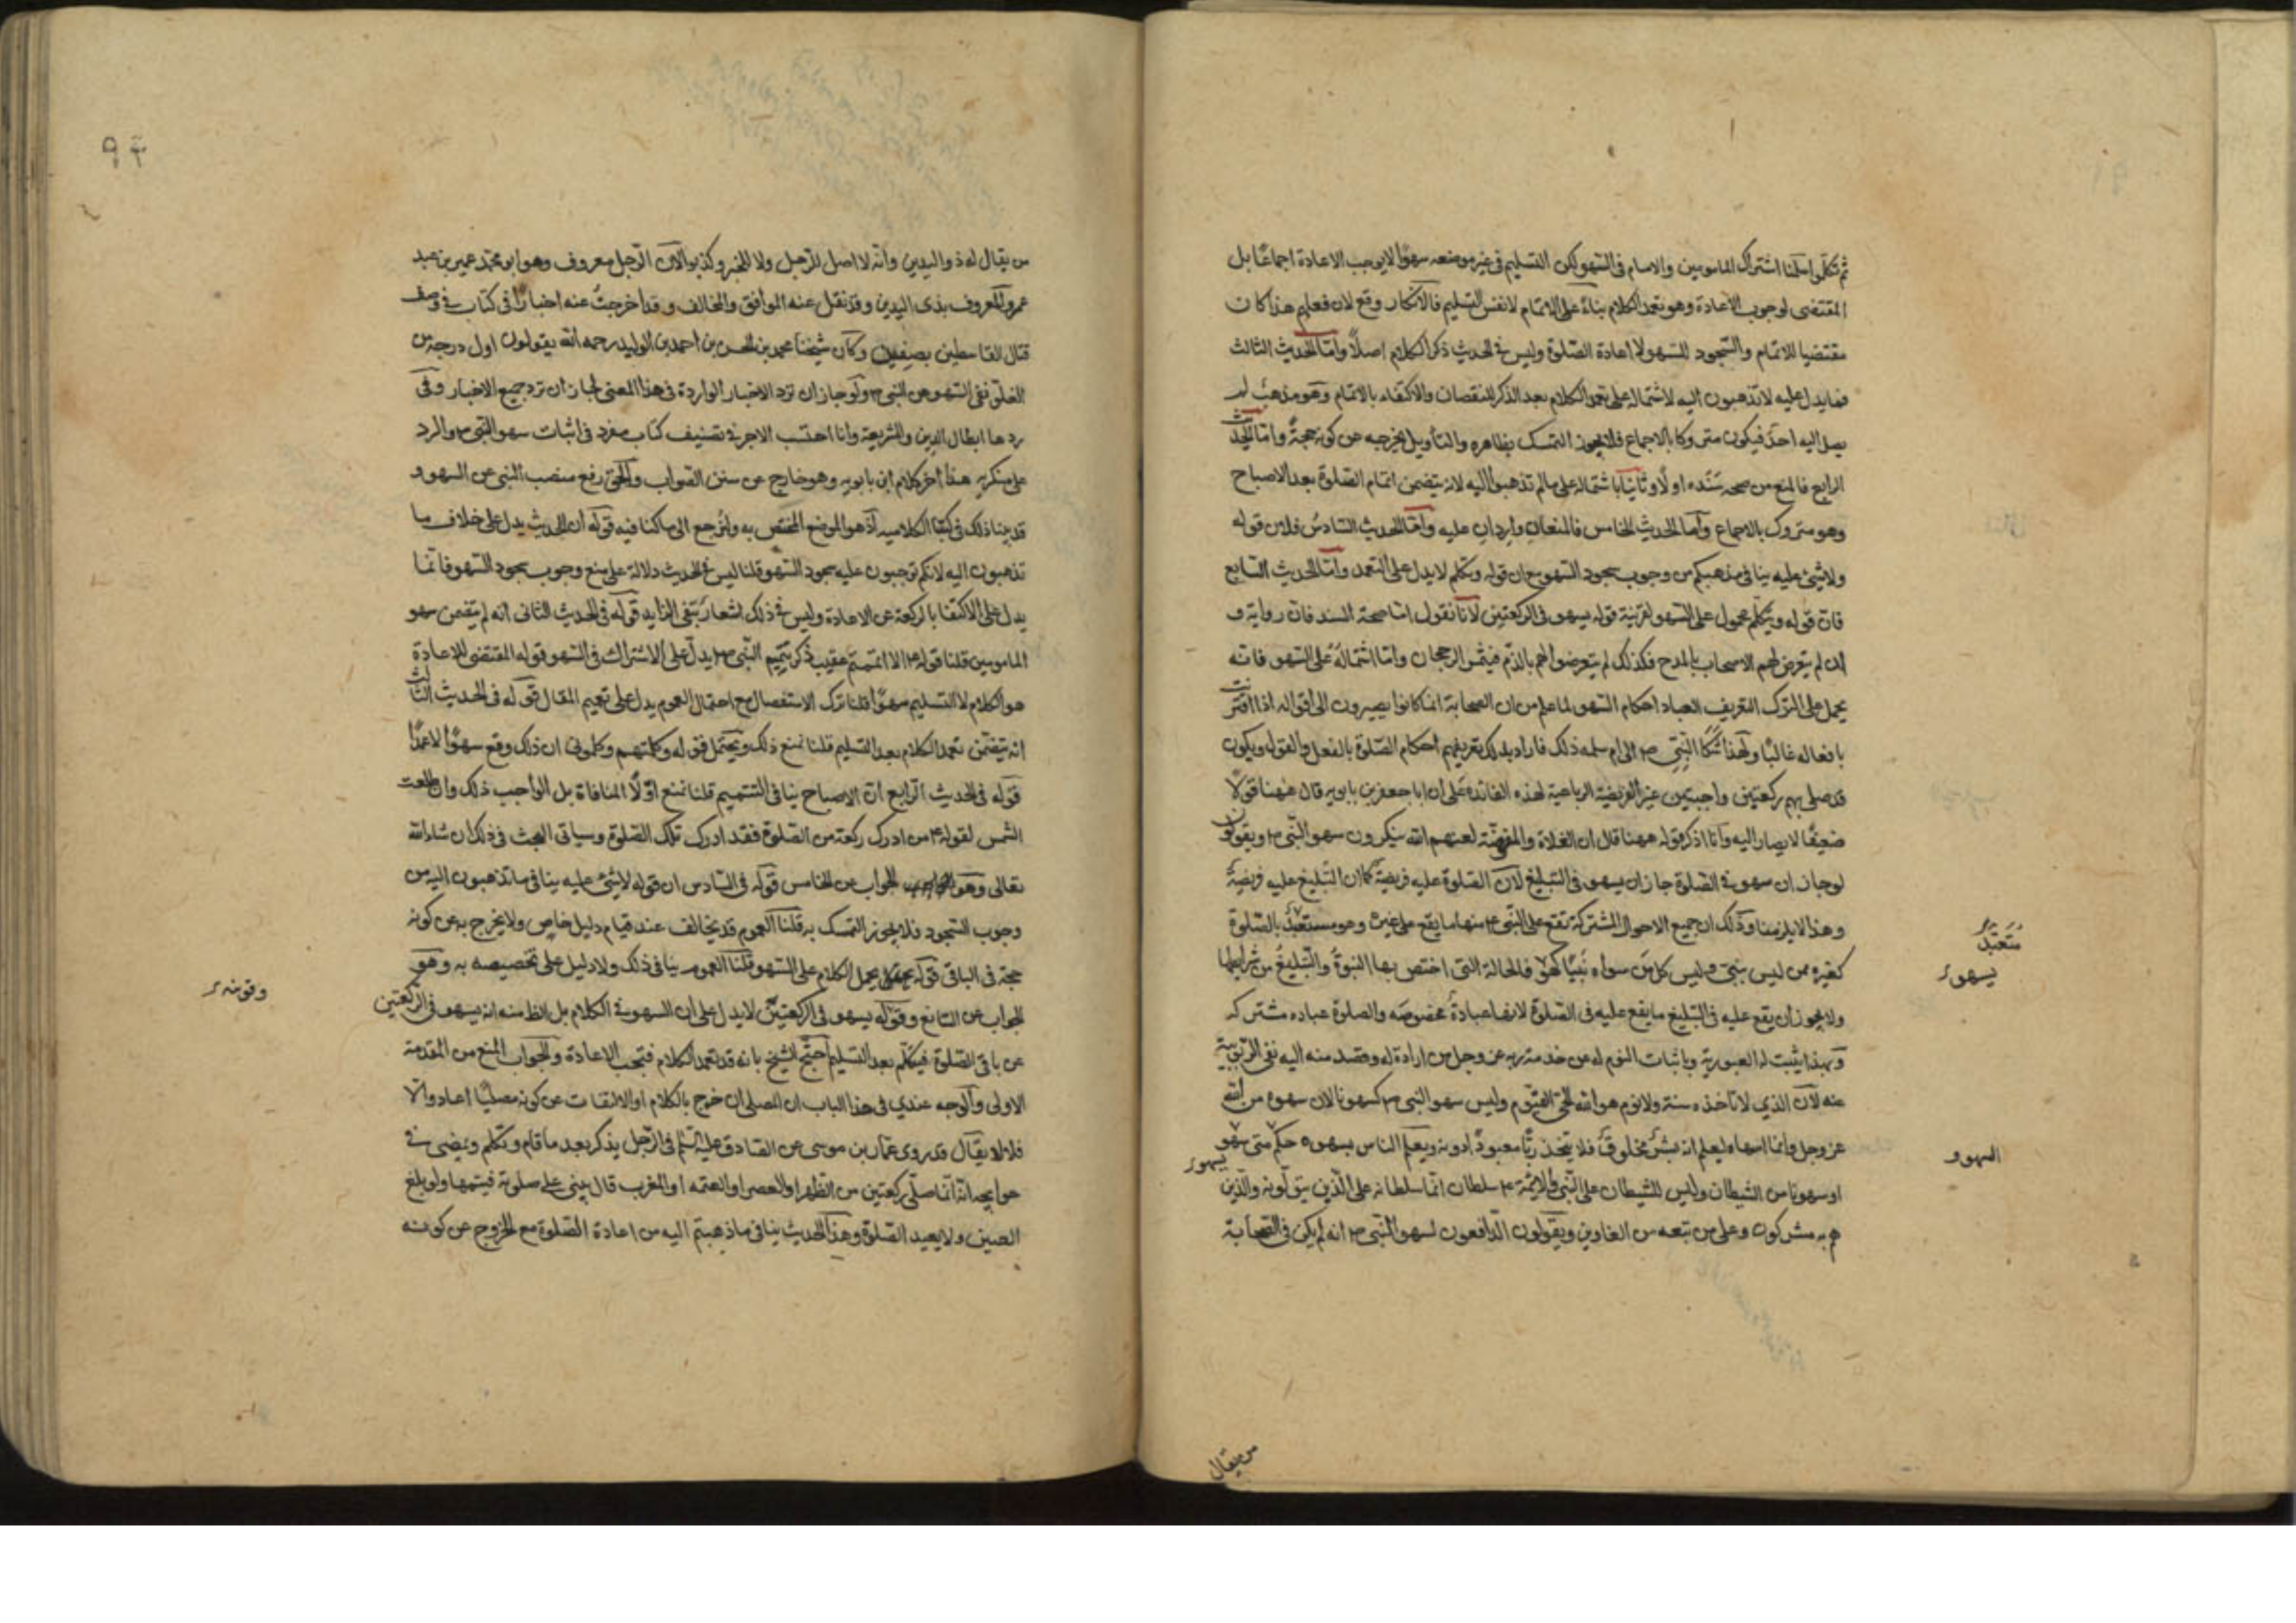 ثم تكلموا سلمنا اشتراك المامومين والامام فى السهو لكن التسليم فى غير موضعه سهوا لا يوجب الاعادة اجماعا بل
المقتضى لوجوب الاعادة وهو تعمد الكلام بناء على الاتمام لا نفس التسليم فالانكار وقع لان فعلهم هذا كان
مقتضيا للاتمام والسجود للسهو لا اعادة الصلوة وليس فى الحديث ذكر الكلام اصلا واما الحديث الثالث
فما يدل عليه لا تذهبون اليه لاشتماله على تعمد الكلام بعد الذكر للنقصان والاكتفاء بالاتمام وهو مذهب لم
يصل اليه احد فيكون متروكا بالاجماع فلا يجوز التمسك بظاهره والتاويل يخرجه عن كونه حجة واما الحديث
الرابع فالمنع من صحة سنده اولا وثانيا باشتماله على ما لم تذهبوا اليه لانه يتضمن اتمام الصلوة بعد الاصباح
وهو متروك بالاجماع واما الحديث الخامس فالمنعان واردان عليه واما الحديث السادس فلان قوله
ولا شئ عليه ينافى مذهبكم من وجوب سجود السهو مع ان قوله وتكلم لا يدل على التعمد واما الحديث السابع
فان قوله ويتكلم محمول على السهو لقرينة قوله يسهو فى الركعتين لانا نقول اما صحة السند فان رواية و
ان لم يتعرض لهم الاصحاب بالمدح فكذلك لم يتعرضوا لهم بالذم فيثمر الرجحان واما اشتماله على السهو فانه
يحمل على الترك لتعريف العباد احكام السهو لما علم من ان الصحابة انما كانوا يصيرون الى اقواله اذا اقترنت
بافعاله غالبا ولهذا شكا النبى ص الى ام سلمه ذلك فاراد بذلك تعريفهم احكام الصلوة بالفعل والقول ويكون
قد صلى بهم ركعتين واجبتين غير الفريضة الرباعية لهذه الفائدة على ان ابا جعفر بن بابويه قال ههنا قولا
ضعيفا لا يصار اليه وانا اذكر قوله ههنا قال ان الغلاة والمفوضة لعنهم الله ينكرون سهو النبى ص ويقولون
لو جاز ان سهو فى الصلوة جاز ان يسهو فى التبليغ لان الصلوة عليه فريضة كما ان التبليغ عليه فريضة
وهذا لا يلزمنا وذلك ان جميع الاحوال المشتركة تقع على النبى ص منها ما يقع على غيره وهو مستعبد بالصلوة
متعبد
كغيره ممن ليس بنبى وليس كل من سواه نبيا كهو فالحالة التى اختص بها النبوة والتبليغ من شرايطها
يسهو
ولا يجوز ان يقع عليه فى التبليغ ما يقع عليه فى الصلوة لانها عبادة مخصوصه والصلوة عباده مشتركه
وبهذا يثبت له العبودية وباثبات النوم له عن خدمة ربه عز وجل من ارادة له وقصد منه اليه نفى الربوبية
عنه لان الذي لا تاخذه سنة ولا نوم هو الله الحى القيوم وليس سهو النبى ص كسهونا لان سهوه من الله
عز وجل وانما اسهاه ليعلم انه بشر مخلوق فلا يتخذ ربا معبودا دونه ويعلم الناس بسهوه حكم متى سهو
السهو
يسهو
او سهونا من الشيطان وليس للشيطان على النبى والائمة ع سلطان انما سلطانه على الذين يتولونه والذين
هم به مشركون وعلى من تبعه من الغاوين ويقولون الدافعون لسهو النبى ص انه لم يكن فى الصحابة
من يقال
٩٢
من يقال له ذو اليدين وانه لا اصل للرجل ولا للخبر وكذبوا لان الرجل معروف وهو ابو محمد عمير بن عبد
عمرو المعروف بذى اليدين وقد نقل عنه الموافق والمخالف و قد اخرجت عنه اخبارا فى كتاب فى وصف
قتال القاسطين بصفين وكان شيخنا محمد بن الحسن بن احمد بن الوليد رحمه الله يقول اول درجة من
الغلو نفى السهو عن النبى ص ولو جاز ان نرد الاخبار الواردة فى هذا المعنى لجاز ان ترد جميع الاخبار وفى
ردها ابطال الدين والشريعة وانا احتسب الاجر فى تصنيف كتاب مفرد فى اثبات سهو النبى ص والرد
على منكريه هذا اخر كلام ابن بابويه وهو خارج عن سنن الصواب والحق رفع منصب النبى عن السهو و
قد بينا ذلك فى كتبنا الكلاميه اذ هو الموضع المختص به ولنرجع الى ما كنا فيه قوله ان الحديث يدل على خلاف ما
تذهبون اليه لانكم توجبون عليه سجود السهو قلنا ليس فى الحديث دلالة على منع وجوب سجود السهو فانما
يدل على الاكتفا بالركعة عن الاعادة وليس فى ذلك اشعار بنفى الزايد قوله فى الحديث الثانى انه لم يتضمن سهو
المامومين قلنا قوله ع الا اتممتم عقيب ذكر تتميم النبى ص يدل على الاشتراك فى السهو قوله المقتضى للاعادة
هو الكلام لا التسليم سهوا قلنا ترك الاستفصال مع احتمال العموم يدل على تعميم المقال قوله فى الحديث الثالث
انه يتضمن تعمد الكلام بعد التسليم قلنا نمنع ذلك ويحتمل قوله وكلمتهم وكلمونى ان ذلك وقع سهوا لا عمدا
قوله فى الحديث الرابع ان الاصباح ينافى التتميم قلنا نمنع اولا المنافاة بل الواجب ذلك وان طلعت
الشمس لقوله ع من ادرك ركعة من الصلوة فقد ادرك تلك الصلوة وسياتى البحث فى ذلك ان شاء الله
تعالى وهو الجواب عن الخامس قوله فى السادس ان قوله لا شئ عليه ينافى ما تذهبون اليه من
وجوب السجود فلا يجوز التمسك به قلنا العموم قد يخالف عند قيام دليل خاص ولا يخرج به عن كونه
حجة فى الباقى قوله يحمل الكلام على السهو قلنا العموم ينافى ذلك ولا دليل على تخصيصه به وهو
الجواب عن السابع وقوله يسهو فى الركعتين لا يدل على ان السهو فى الكلام بل الظا منه انه يسهو فى الركعتين
وقوله
عن باقى الصلوة فيتكلم بعد التسليم احتج الشيخ بانه قد تعمد الكلام فتجب الاعادة والجواب المنع من المقدمة
الاولى والاوجه عندي فى هذا الباب ان المصلى ان خرج بالكلام او الالتفات عن كونه مصليا اعاد والا
فلا لا يقال قد روى عمار بن موسى عن الصادق عليه السلم فى الرجل يذكر بعد ما قام وتكلم ومضى فى
حوايجه انه انما صلى ركعتين من الظهر او العصر او العتمه او المغرب قال يبنى على صلوته فيتمها ولو بلغ
الصين ولا يعيد الصلوة وهذا الحديث ينافى ما ذهبتم اليه من اعادة الصلوة مع الخروج عن كونه